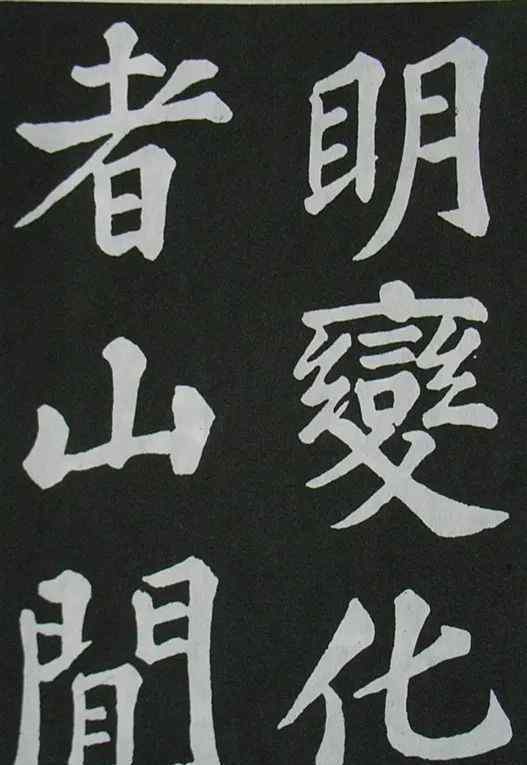 明變化
者山閒